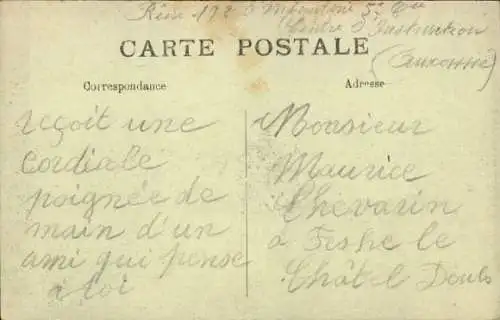 172 d'Infanterie 5e Cie
Centre d'Instruction
(Auxonne)
CARTE POSTALE
Correspondance
Adresse
reçoit une
Cordiale
poignée de
main d'un
ami qui pense
à toi
Monsieur
Maurice
Chevarin
à Fesche le
Châtel Doubs